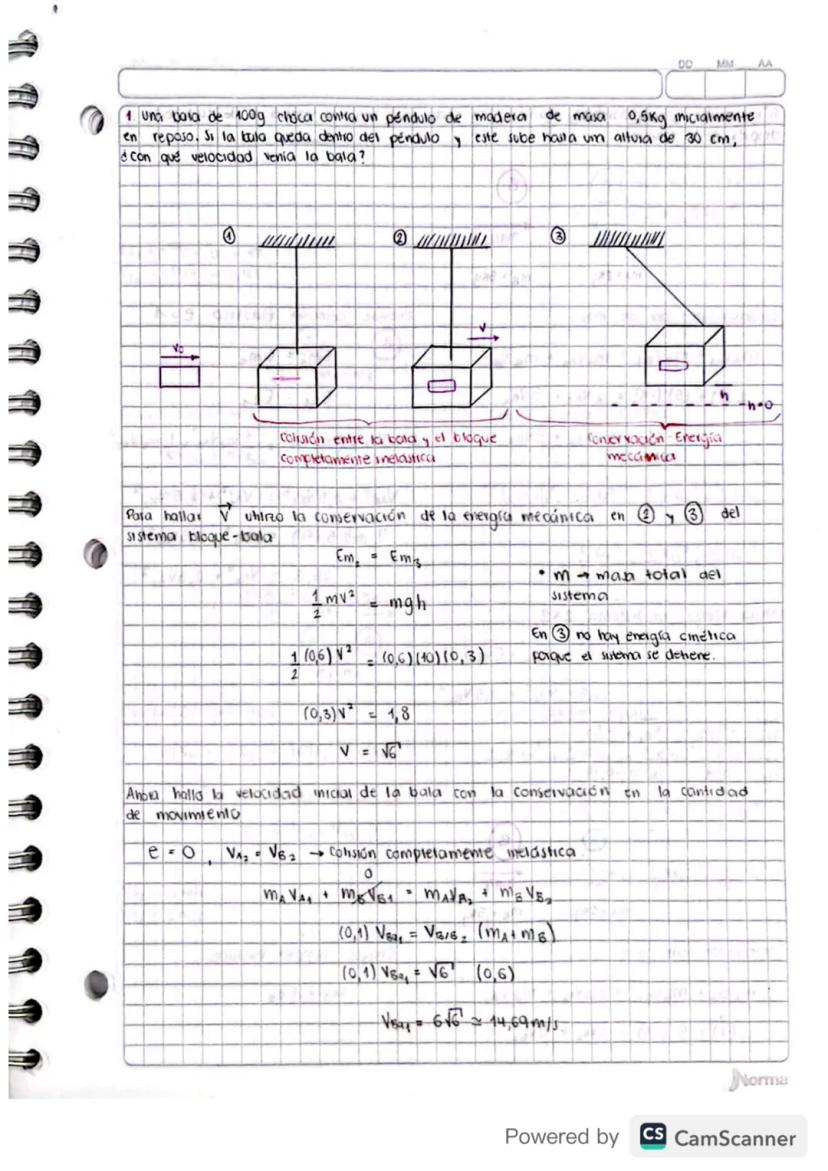 DD MM AA
1 Una bala de 100g choca contra un péndulo de madera de masa 0,5Kg inicialmente
en reposo. Si la bala queda dentro del péndulo y este sube hasta um altura de 30 cm,
¿con qué velocidad venía la bala?
① ② ③
V
V₀
h
h=0
Colisión entre la bala y el bloque
completamente inelástica
Conservación Energía
mecánica
Para hallar V⃗ utilizo la conservación de la energía mecánica en ② y ③ del
sistema bloque-bala
Em₂ = Em₃
• m → masa total del
sistema
1/2 mv² = mgh
En ③ no hay energía cinética
porque el sistema se detiene.
1/2 (0,6) V² = (0,6)(10)(0,3)
(0,3)V² = 1,8
V = √6
Ahora hallo la velocidad inicial de la bala con la conservación en la cantidad
de movimiento
e = 0, VA₂ = VB₂ → Colisión completamente inelástica
0
mA VA₁ + mB VB₁ = mA VA₂ + mB VB₂
(0,1) VBa₁ = VB/B₂ (mA + mB)
(0,1) VBa₁ = √6 (0,6)
VBa₁ = 6√6 ≃ 14,69 m/s
Norma
Powered by CS CamScanner